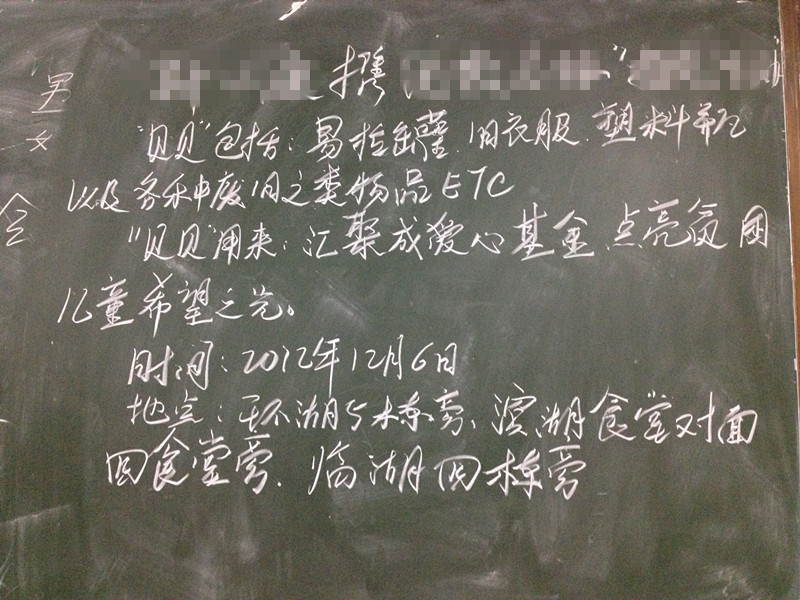 男
女
会
携
"贝贝"包括:易拉罐、旧衣服、塑料瓶
以及各种废旧之类物品ETC
"贝贝"用来:汇聚成爱心基金 点亮贫困
儿童希望之光。
时间:2012年12月6日
地点:环湖5栋旁、滨湖食堂对面
四食堂旁、临湖四栋旁